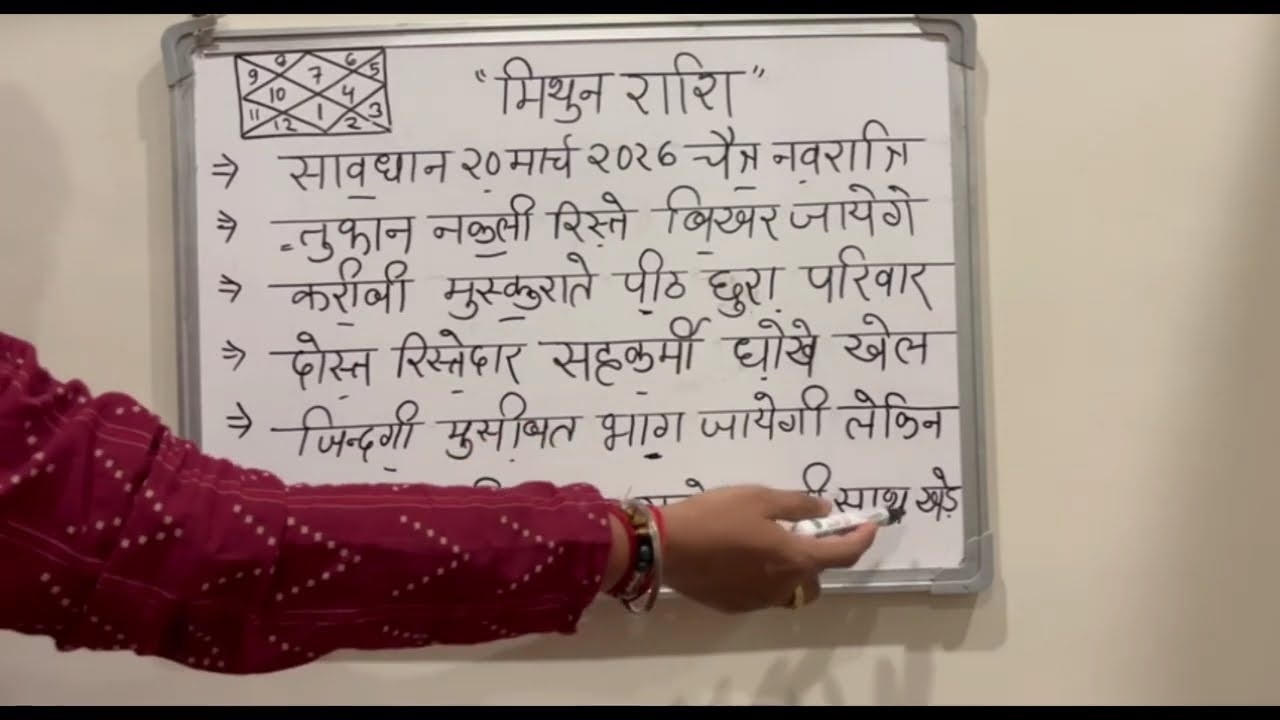 8 6
9 7 5
10 4
11 1 3
12 2
"मिथुन राशि"
⇒ सावधान २० मार्च २०२६ चैत्र नवरात्रि
⇒ तुफान नकली रिस्ते बिखर जायेगे
⇒ करीबी मुस्कुराते पीठ छुरा परिवार
⇒ दोस्त रिस्तेदार सहकर्मी धोखे खेल
⇒ जिन्दगी मुसीबत भाग जायेगी लेकिन
साथ खड़े